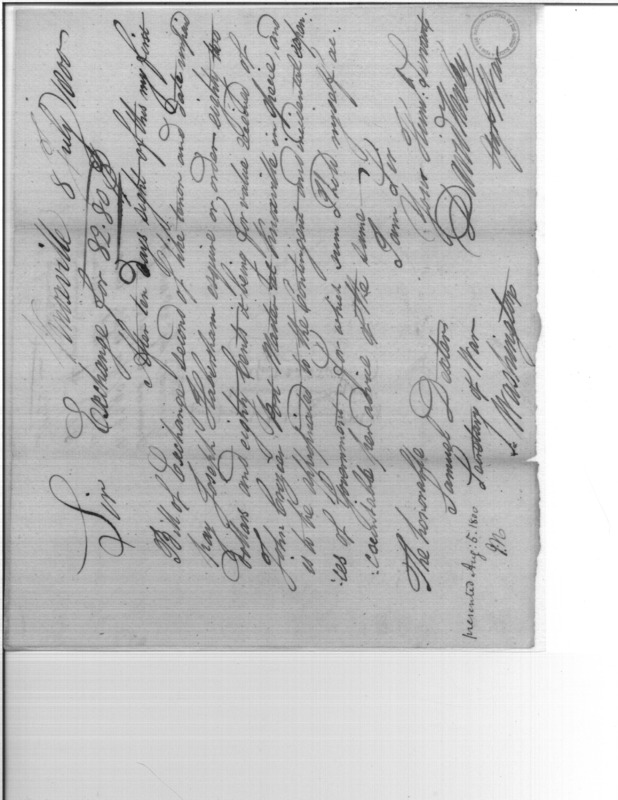 Knoxville 8 July 1800
Sir
Exchange for 82.80
After ten days sight of this my first
Bill of Exchange second of like tenor and date unpaid
pay Joseph Habersham esquire or order eighty two
Dollars and eighty Cents it being for value received of
John Post Master at Knoxville in Specie, and
is to be appropriated to the Contingent and incidental expen-
-ces of Government for which sum I hold myself ac-
-countable per advice of the same
I am Sir
Your Humb. Servant
David Henley
Agt War
The honorable
Samuel Dexter
Secretary of War
Washington
presented Aug: 5. 1800